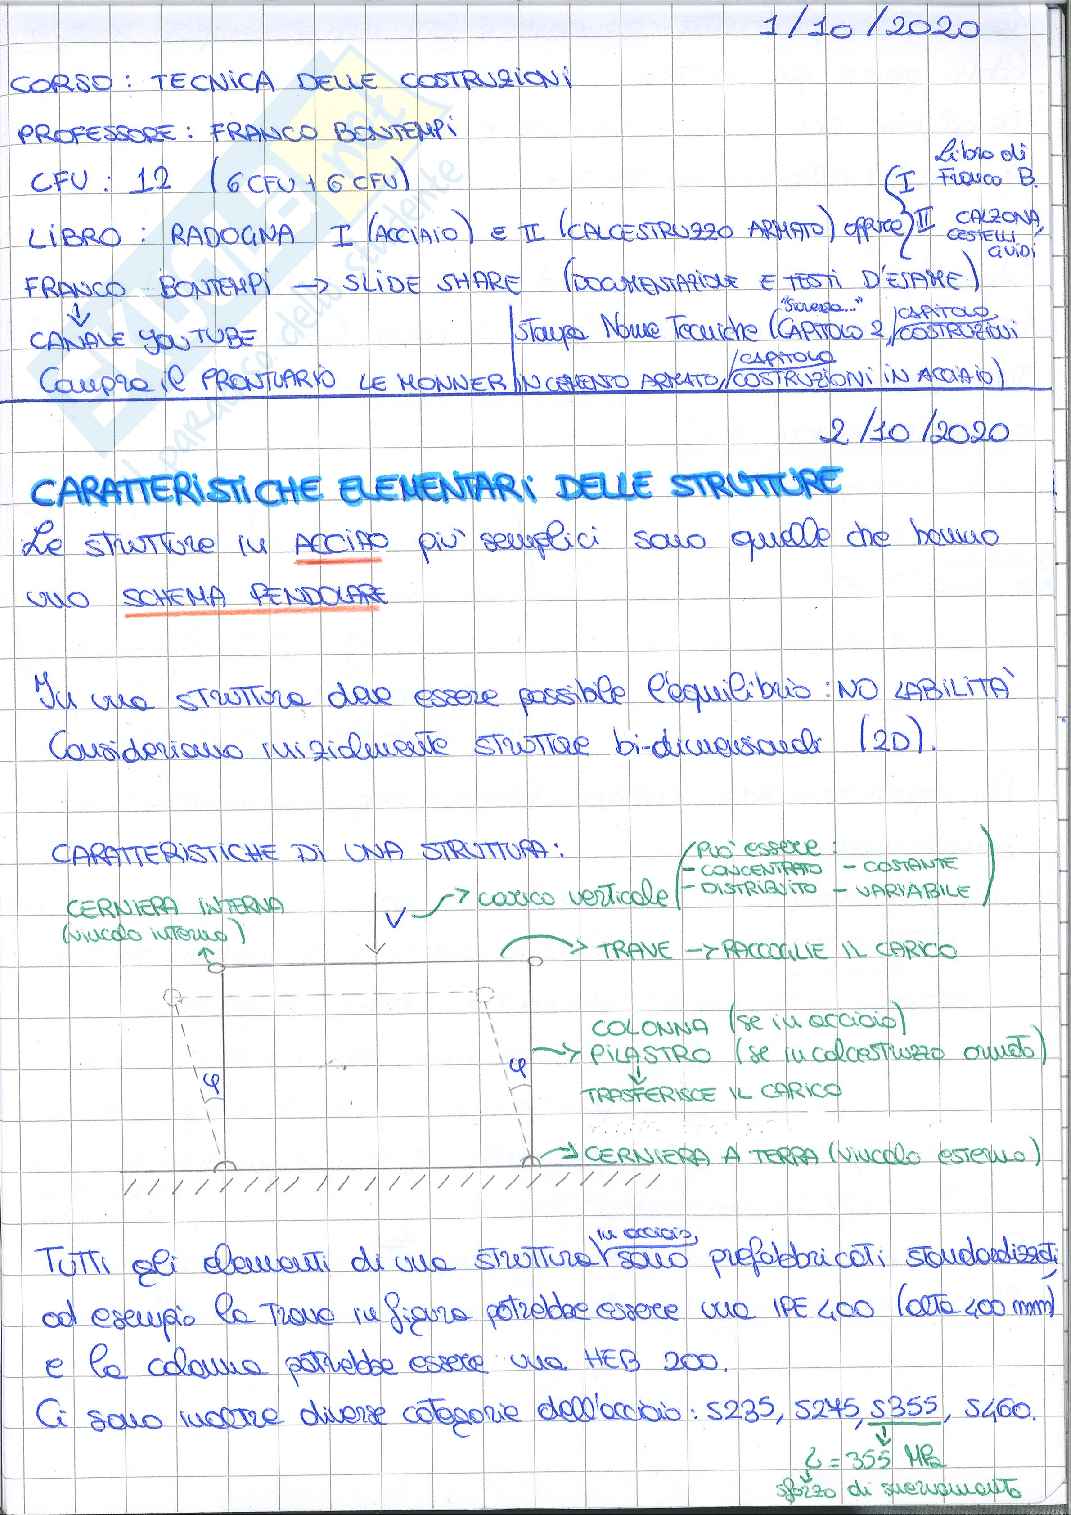 1/10/2020
CORSO : TECNICA DELLE COSTRUZIONI
PROFESSORE : FRANCO BONTEMPI
CFU : 12 (6 CFU + 6 CFU)
LIBRO : RADOGNA I (ACCIAIO) E II (CALCESTRUZZO ARMATO) oppure
I Libro di Franco B.
II CALZONA, CESTELLI GUIDI
FRANCO BONTEMPI → SLIDE SHARE (DOCUMENTAZIONE E TESTI D'ESAME)
CANALE YOUTUBE
Stampa Norme Tecniche ("Sicurezza..." CAPITOLO 2, CAPITOLO COSTRUZIONI
Compra il PRONTUARIO LE MONNER
IN CEMENTO ARMATO, CAPITOLO COSTRUZIONI IN ACCIAIO)
2/10/2020
CARATTERISTICHE ELEMENTARI DELLE STRUTTURE
Le strutture in ACCIAO più semplici sono quelle che hanno
uno SCHEMA PENDOLARE
In una struttura deve essere possibile l'equilibrio : NO LABILITÀ
Consideriamo inizialmente strutture bi-dimensionali (2D).
CARATTERISTICHE DI UNA STRUTTURA :
CERNIERA INTERNA
(vincolo interno)
V
carico verticale
(PUÒ essere :
- CONCENTRATO - COSTANTE
- DISTRIBUITO - VARIABILE)
TRAVE → RACCOGLIE IL CARICO
COLONNA (se in acciaio)
PILASTRO (se in calcestruzzo armato)
TRASFERISCE IL CARICO
φ
φ
CERNIERA A TERRA (vincolo esterno)
Tutti gli elementi di una struttura in acciaio, sono prefabbricati standardizzati,
ad esempio la trave in figura potrebbe essere una IPE 400 (alta 400 mm)
e la colonna potrebbe essere una HEB 200.
Ci sono inoltre diverse categorie dell'acciaio : S235, S275, S355, S460.
= 355 MPa
sforzo di snervamento